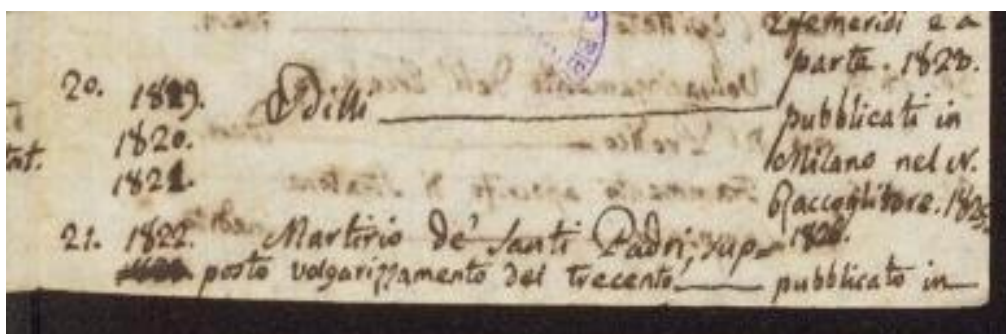 Efemeridi e a
parte. 1822.
20. 1819. Idilli pubblicati in
1820. Milano nel N.
1821. Raccoglitore. 1825.
21. 1822. Martirio de' Santi Padri, sup= 1826.
posto volgarizzamento del trecento. pubblicato in